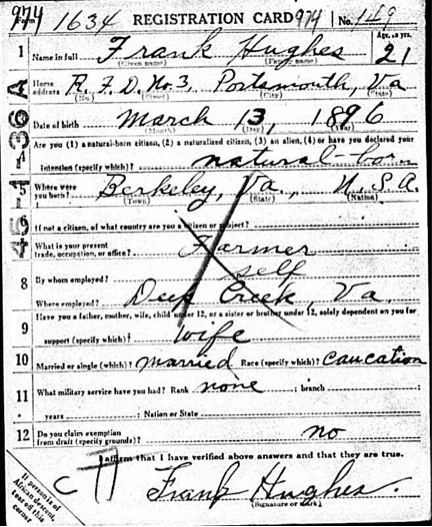 974 1634 REGISTRATION CARD 974 No. 149
Form 1
1 Name in full Frank Hughes 21
(Given name) (Family name) Age, in yrs.
2 Home address R. F. D. No. 3, Portsmouth, Va
(No.) (Street) (City) (State)
3 Date of birth March 13, 1896
(Month) (Day) (Year)
Are you (1) a natural-born citizen, (2) a naturalized citizen, (3) an alien, (4) or have you declared your
4 intention (specify which)? natural-born
5 Where were you born? Berkeley, Va., U.S.A.
(Town) (State) (Nation)
6 If not a citizen, of what country are you a citizen or subject?
7 What is your present trade, occupation, or office? Farmer
8 By whom employed? self
Where employed? Deep Creek, Va.
9 Have you a father, mother, wife, child under 12, or a sister or brother under 12, solely dependent on you for
support (specify which)? wife
10 Married or single (which)? married Race (specify which)? caucation
11 What military service have you had? Rank none ; branch
years ; Nation or State
12 Do you claim exemption from draft (specify grounds)? no
I affirm that I have verified above answers and that they are true.
Frank Hughes.
(Signature or mark)
If person is of African descent, tear off this corner
45-1-36 A